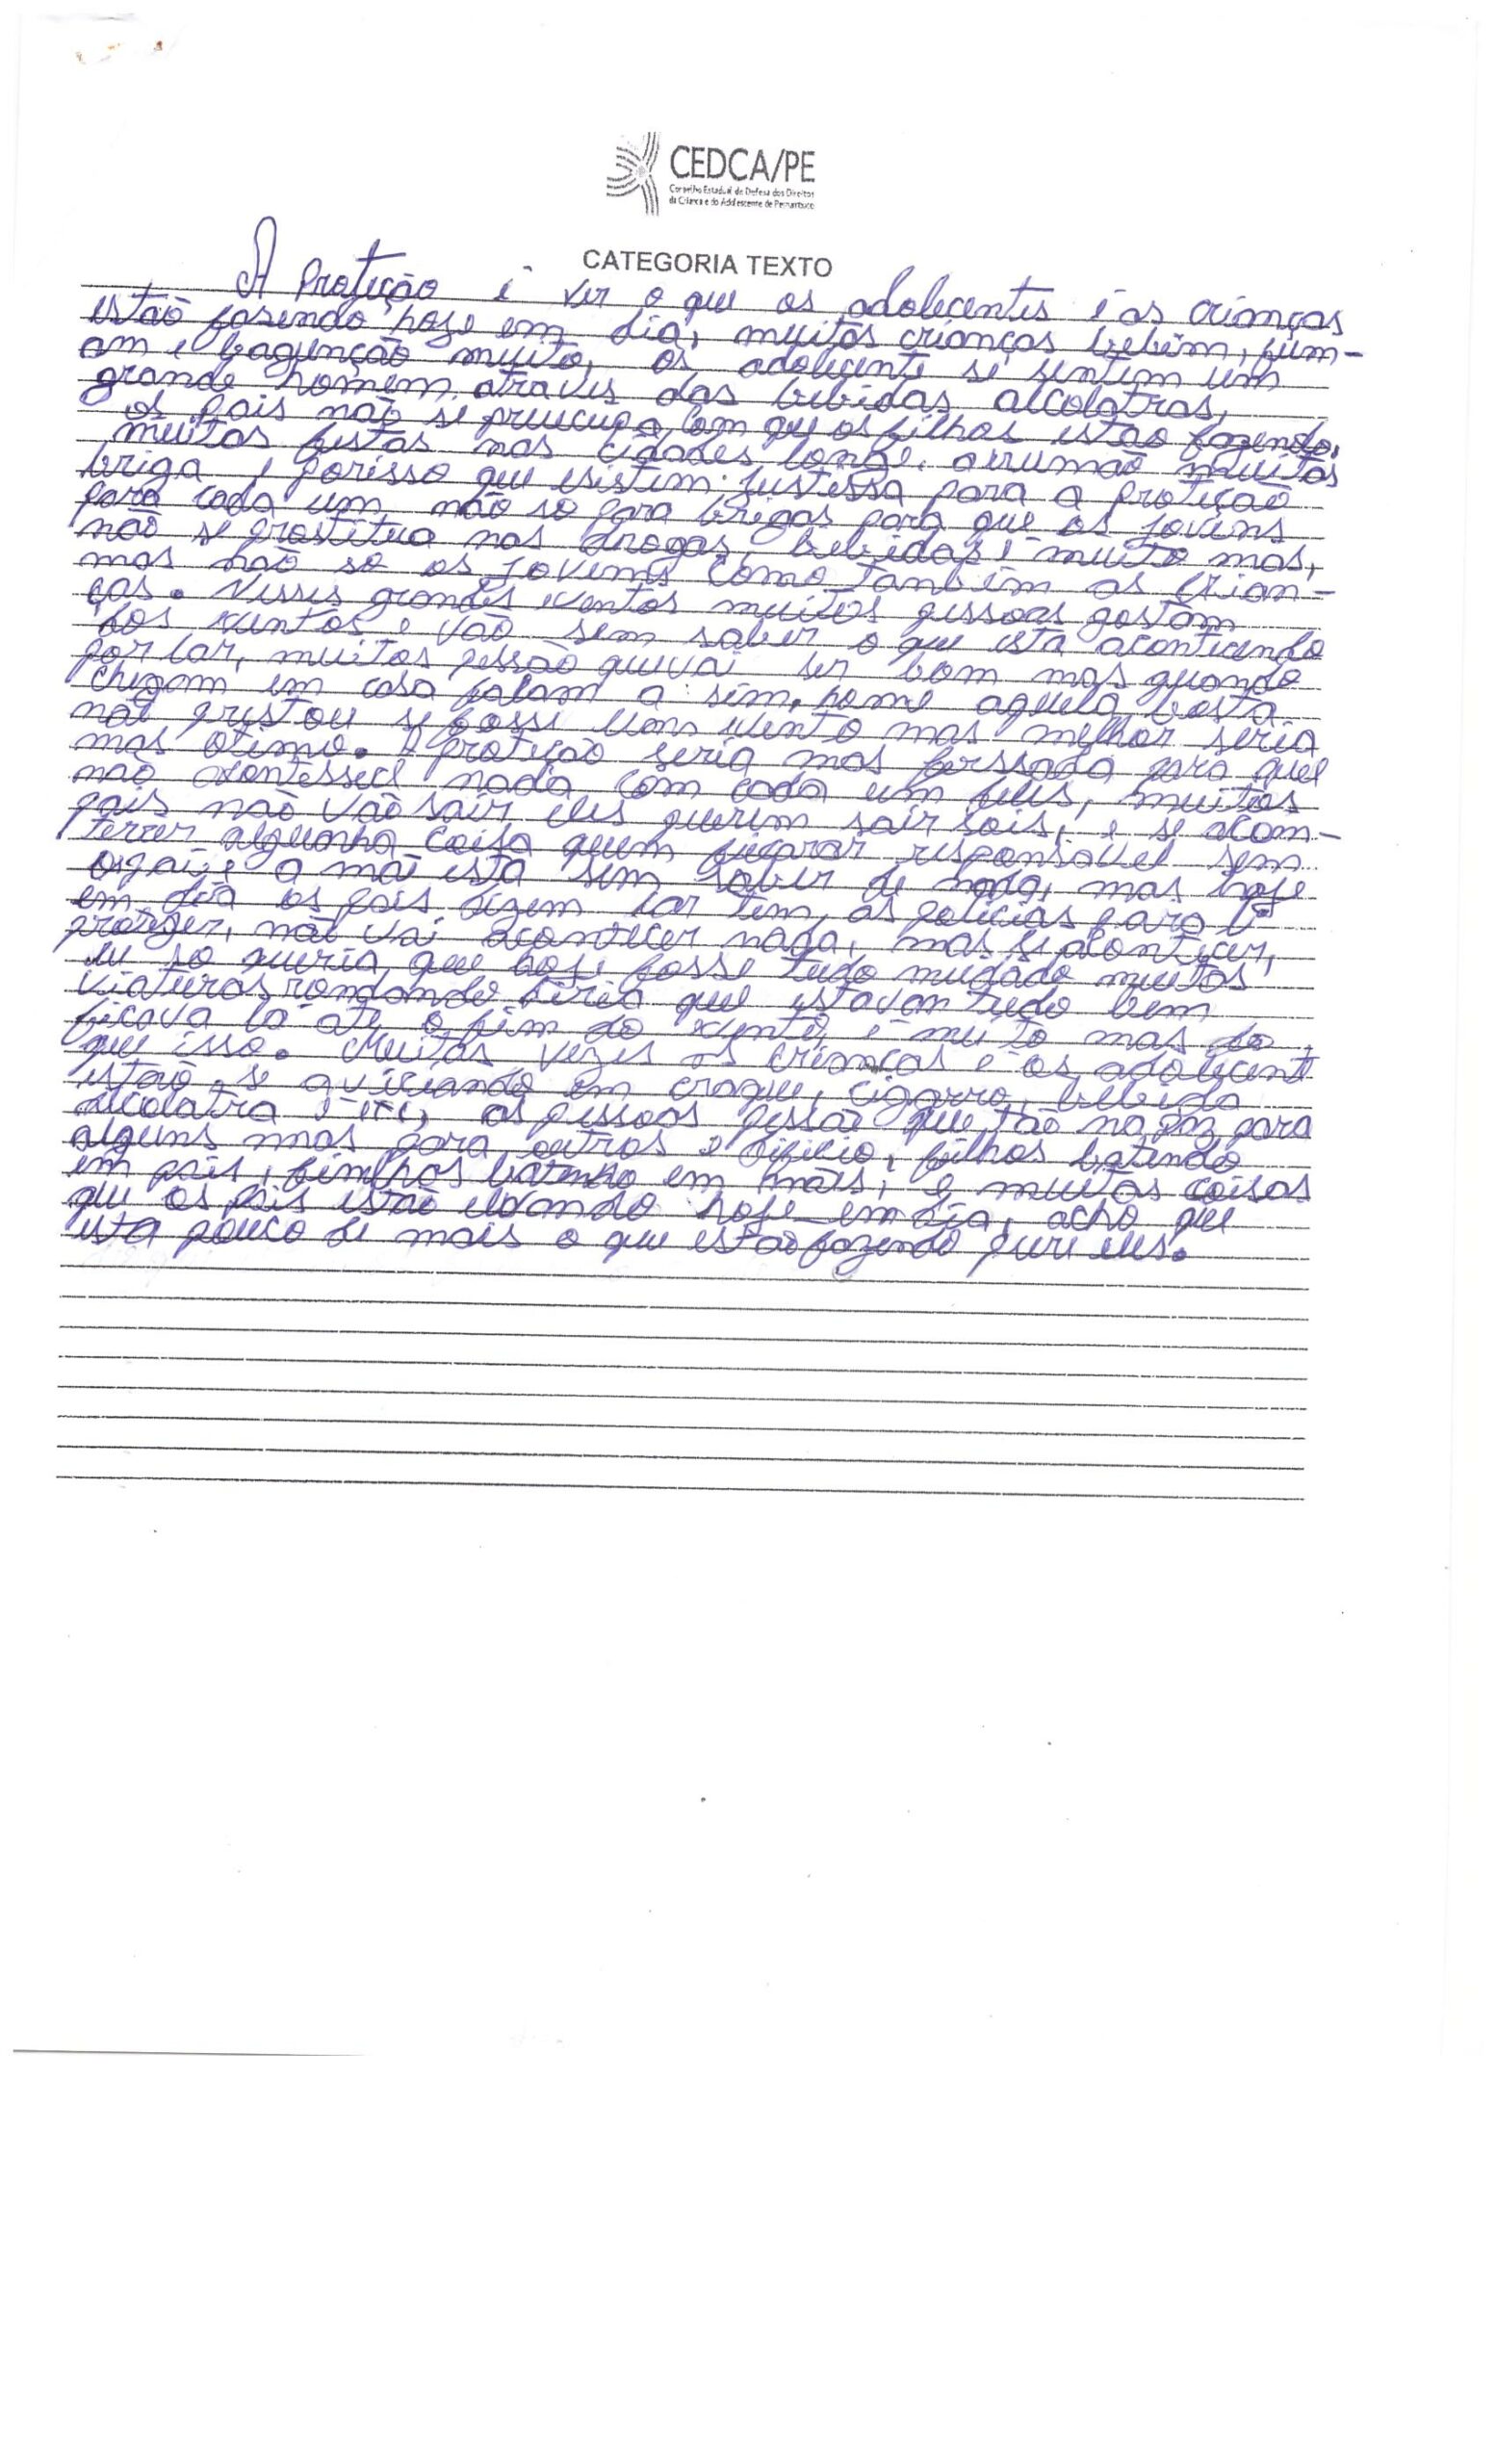 CEDCA/PE
Conselho Estadual de Defesa dos Direitos
da Criança e do Adolescente de Pernambuco
CATEGORIA TEXTO
A Proteção é ver o que os adolecentes é as crianças
estão fasendo hoje em dia, muitas crianças bebem, fum-
am e bagunção muito, os adolecente se sentem um
grande homem atraves das bebidas alcolatras,
os pais não se preucupa com que os filhos estão fazendo,
muitas festas nas cidades longe, arrumão muitas
briga e porisso que esistem justessa para a proteção
para cada um, não so para brigas para que os jovens
não se prostitua nas drogas, bebidas é muito mas,
mas não so os jovems como também as crian-
ças. Nesses grandes eventos muitos pessoas gostam
dos eventos e vão sem saber o que está acontecendo
por lar, muitos pessão que vai ser bom mas quando
chegam em casa falam a sim, home aquela bosta
não prestou se fosse um evento mas melhor seria
mas otimo. A proteção seria mas forssada para que
não contessece nada com cada um deles, muitos
pais não vão sair eles querem sair sois, e se acom-
terrer alguonha coisa quem ficarar responsavel sem
o pai e a mãe está sem saber de nada, mas hoje
em dia os pais dizem lar tem, as policias para ti
proteger, não vai acontecer nada, mas se acontecer,
eu so queria que hoje fosse tudo mudado muitas
viaturas rondando diria que estavam tudo bem
ficava lá ate o fim do evento, é muito mas do
que isso. Muitas vezes as crianças e os adolecent
estão se aviciando em craque, cigarro, bebida
alcolatra é etc, as pessoas pessão que tão na paz para
alguns mas para outros e dificio, filhos batendo
em pais, fimlhos batendo em mães, e muitas coisas
que os pais estão levando hoje em dia, acho que
esta pouco de mais o que estão fazendo puri eles.